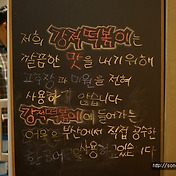 저희 강정떡볶이는
깔끔한 맛을 내기위해
고추장과 미원을 전혀
사용하지 않습니다
강정떡볶이에 들어가는
어묵은 부산에서 직접 공수한
사용하고있습니다